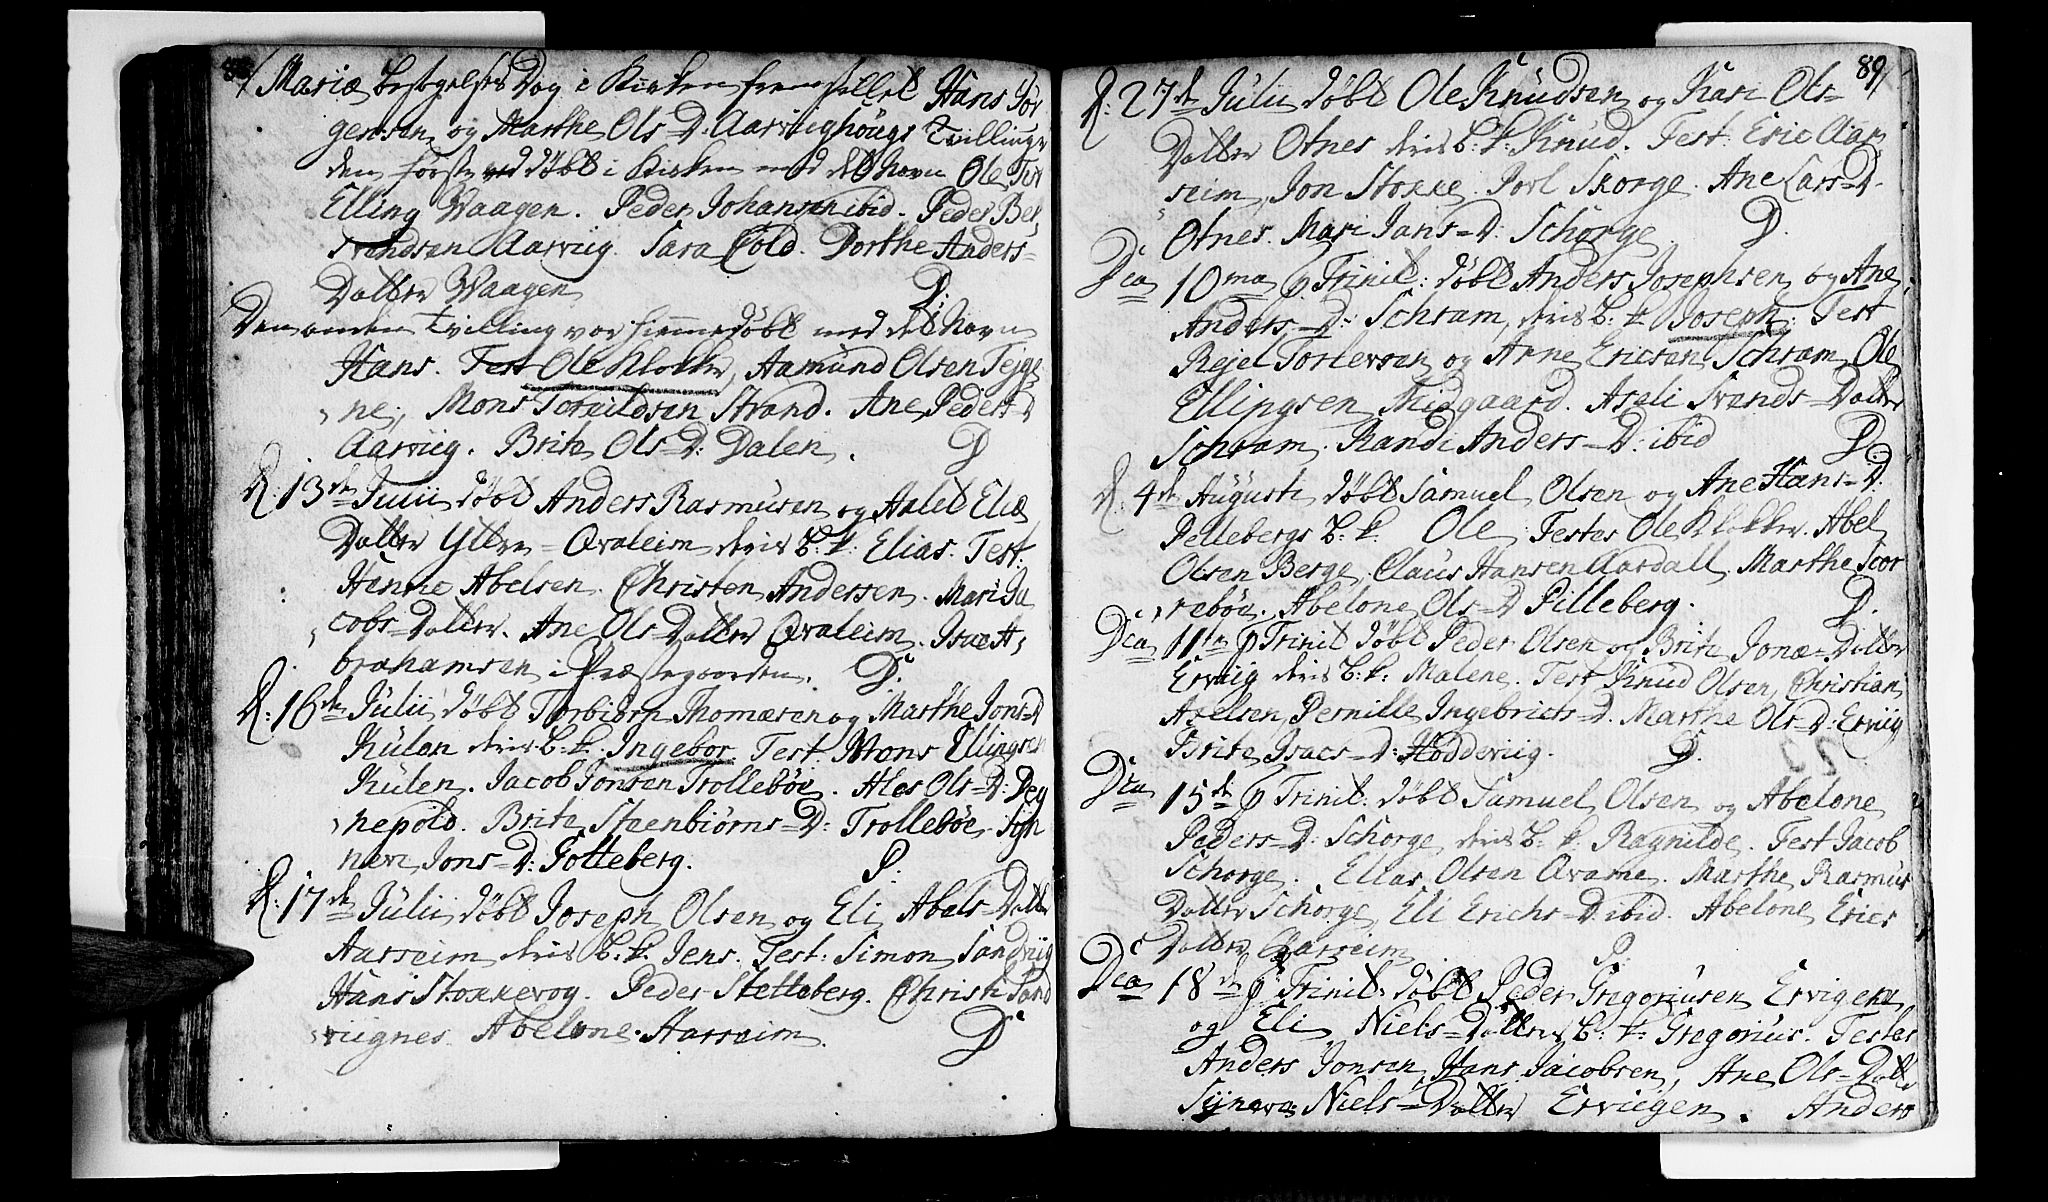 88
Mariæ besøgelses Dag i Kirken fremstillet Hans Jör
gensen og Marthe Ols=D: Aarviighougs Tvillinger
den første døbt i Kirken med det Navn Ole. Test
Elling Waagen. Peder Johansen ibid. Peder Bel,
svendsen Aarviig. Sara Cold. Dorthe Anders=
Datter Waagen D:
Den anden Tvilling var hiemmedøbt med det Navn
Hans. Test Ole Klokker, Aamund Olsen Tejge
ne, Mons Toreildsen Strand. Ane Peders=D
Aarviig. Brite Ols=D: Dalen. D
D: 13de Julii døbt Anders Rasmusen og Aalet Eliæ
Datter Yttre=Qvaleim deris b: k: Elias. Test:
Henne Abelsen. Christen Andersen. Mari Ja
cobs=Datter. Ane Ols=Datter Qvaleim. Isac A,
brahamsen i Præstegaarden. D.
D: 16de Julii døbt Torbiørn Thomæsen og Marthe Jons=D
Kulen deris b: k: Ingebor. Test. Mons Ellingsen
Kulen. Jacob Jonsen Trolleböe. Ales Ols=D: Deg
nepold. Brite Steenbiørns=D: Trolleböe. Sig
nevi Jons=D: Totteberg. D.
D: 17de Julii døbt Joseph Olsen og Eli Abels=Datter
Aarseim deris b: k. Jens. Test: Simon Sandviig
Hans Stokkevog. Peder Stetteberg. Christi Sand
viignes. Abelone Aarseim. D
89
D: 27de Julii døbt Ole Knudsen og Kari Ols=
Datter Otnes deris b: k: Knud. Test: Eric Aar
seim, Jon Stokke. Joel Skorge. Ane Lars=D.
Otnes. Mari Jans=D: Schorge D.
Dca 10ma p Trinit: døbt Anders Josephsen og Ane
Anders=D: Schram, deris b: k Joseph: Test
Rejel Torlevsen og Arne Ericsen Schram, Ole
Ellingsen Nidgaard. Aseli Svends=Datter
Schram. Randi Anders=D: ibid D.
D: 4de Augusti døbt Samuel Olsen og Ane Hans=D.
Pellebergs b: k. Ole. Testes Ole Klokker. Abel
Olsen Berge, Claus Hansen Aardall. Marthe Scor
reböe. Abelone Ols=D Pilleberg. D.
Dca 11te p Trinit døbt Peder Olsen og Brite Jonæ=Datter
Erviig deris b: k: Malene. Test Knud Olsen, Christian
Axelsen, Pernille Ingebricts=D. Marthe Ols=D: Erviig
Brite Isacs=D: Hoddeviig. D.
Dca 15de p Trinit: døbt Samuel Olsen og Abelone
Peders=D: Schorge deris b: k: Ragnilde. Test Jacob
Schorge. Elias Olsen Qvame. Marthe Rasmus
Datter Schorge, Eli Erichs=D ibid. Abelone Erics
Datter Aarseim D.
Dca 18de p Trinit: døbt Peder Gregoriusen Ervigen
og Eli Niels=Datters b: k: Gregorius. Testes
Anders Jonsen, Hans Jacobsen, Ane Ols=Datt
Syneva Niels=Datter Erviigen. Anders